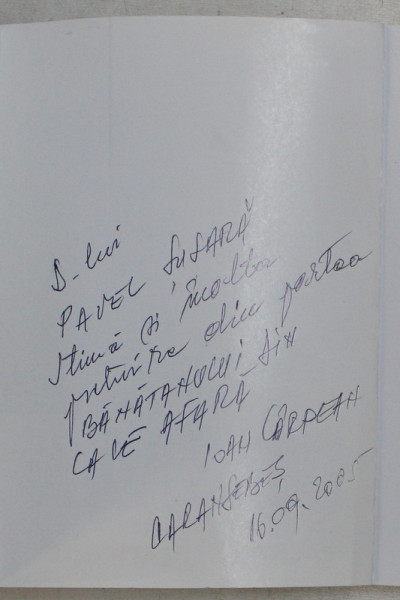 D-lui
PAVEL ȘUȘARĂ
stimă și înalta
prețuire din partea
BĂNĂȚANULUI DIN
CALE AFARĂ
IOAN CÂRDEAN
CARANSEBEȘ
16.09.2005